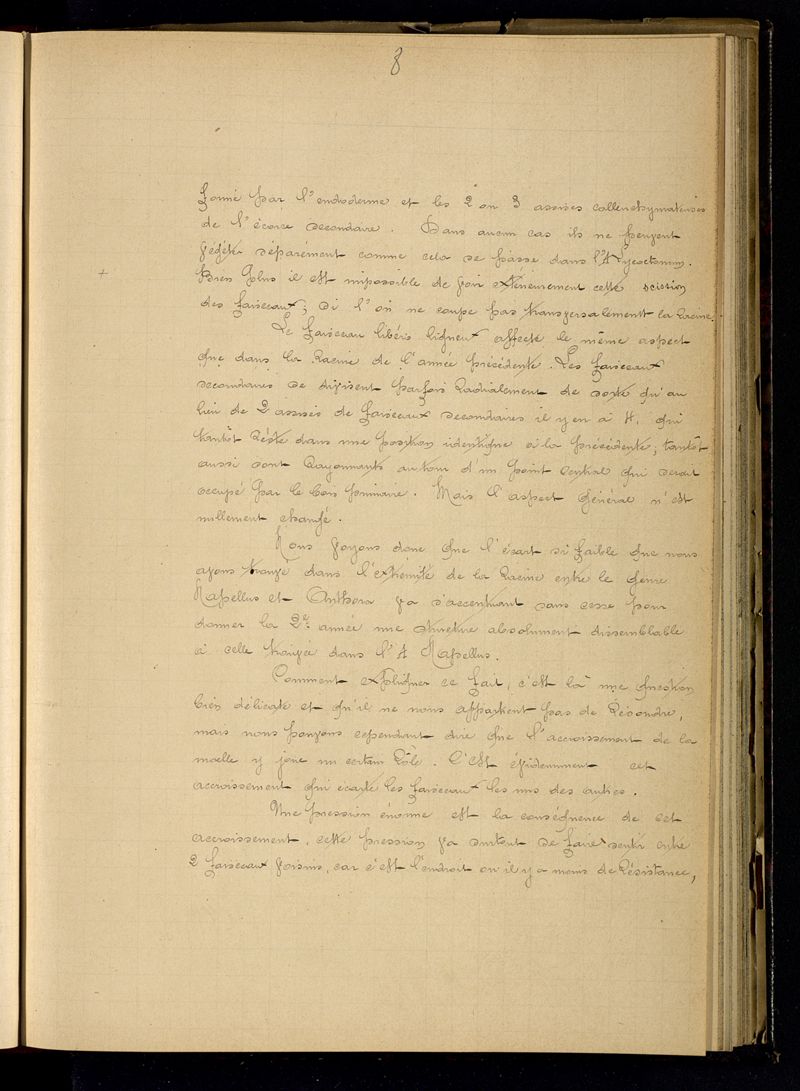 8
formé par l'endoderme et les 2 ou 3 assises collenchymateuses
de l'écorce secondaire. Dans aucun cas ils ne peuvent
végéter séparément comme cela se passe dans l'A lycoctonum.
+ Bien plus il est impossible de voir extérieurement cette scission
des faisceaux, si l'on ne coupe pas transversalement la racine.
Le faisceau libéro ligneux affecte le même aspect
que dans la racine de l'année précédente. Les faisceaux
secondaires se divisent parfois radialement de sorte qu'au
lieu de 2 assises de faisceaux secondaires il y en a 4, qui
tantôt reste dans une position identique à la précédente, tantôt
aussi sont rayonnants autour d'un point central qui serait
occupé par le bois primaire. Mais l'aspect général n'est
nullement changé.
Nous voyons donc que l'écart si faible que nous
avons trouvé dans l'extrémité de la racine entre le genre
Napellus et Anthora va s'accentuant sans cesse pour
donner la 2e année une structure absolument dissemblable
à celle trouvée dans l'A Napellus.
Comment expliquer ce fait, c'est là une question
bien délicate et qu'il ne nous appartient pas de résoudre,
mais nous pouvons cependant dire que l'accroissement de la
moelle y joue un certain rôle. C'est évidemment cet
accroissement qui écarte les faisceaux les uns des autres.
Une pression énorme est la conséquence de cet
accroissement, cette pression va surtout se faire sentir entre
2 faisceaux voisins, car c'est l'endroit où il y a moins de résistance,